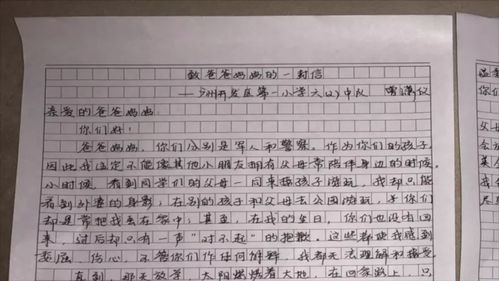 致爸爸妈妈的一封信
——泸州开发区第一小学六(2)中队 曾漢仪
亲爱的爸爸妈妈:
你们好!
爸爸妈妈,你们分别是军人和警察。作为你们的孩子,
因此我注定不能像其他小朋友拥有父母常陪伴身边的时候。
小时候,看到同学们的父母一同来陪孩子游玩,我却只能
看到外婆的身影;在别的孩子和父母去公园游玩,予你们
却是常把我丢在家中;甚至,在我的生日,你们也没有回
来,过后却只有一声“对不起”的抱歉。这些都使我感到
委屈、伤心,不管你们作任何解释,我都无法理解和接受。
直到,那天放学,太阳燃烧着大地,在回家路上,只